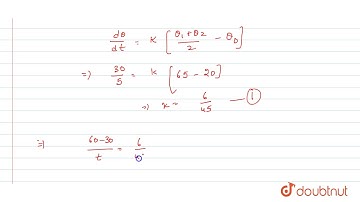 dθ/dt = K [ (θ₁ + θ₂)/2 − θ₀ ]
⇒) 30/5 = k [ 65 − 20 ]
⇒) k = 6/45 — ①
⇒) (60−30)/t = 6/
doubtnut